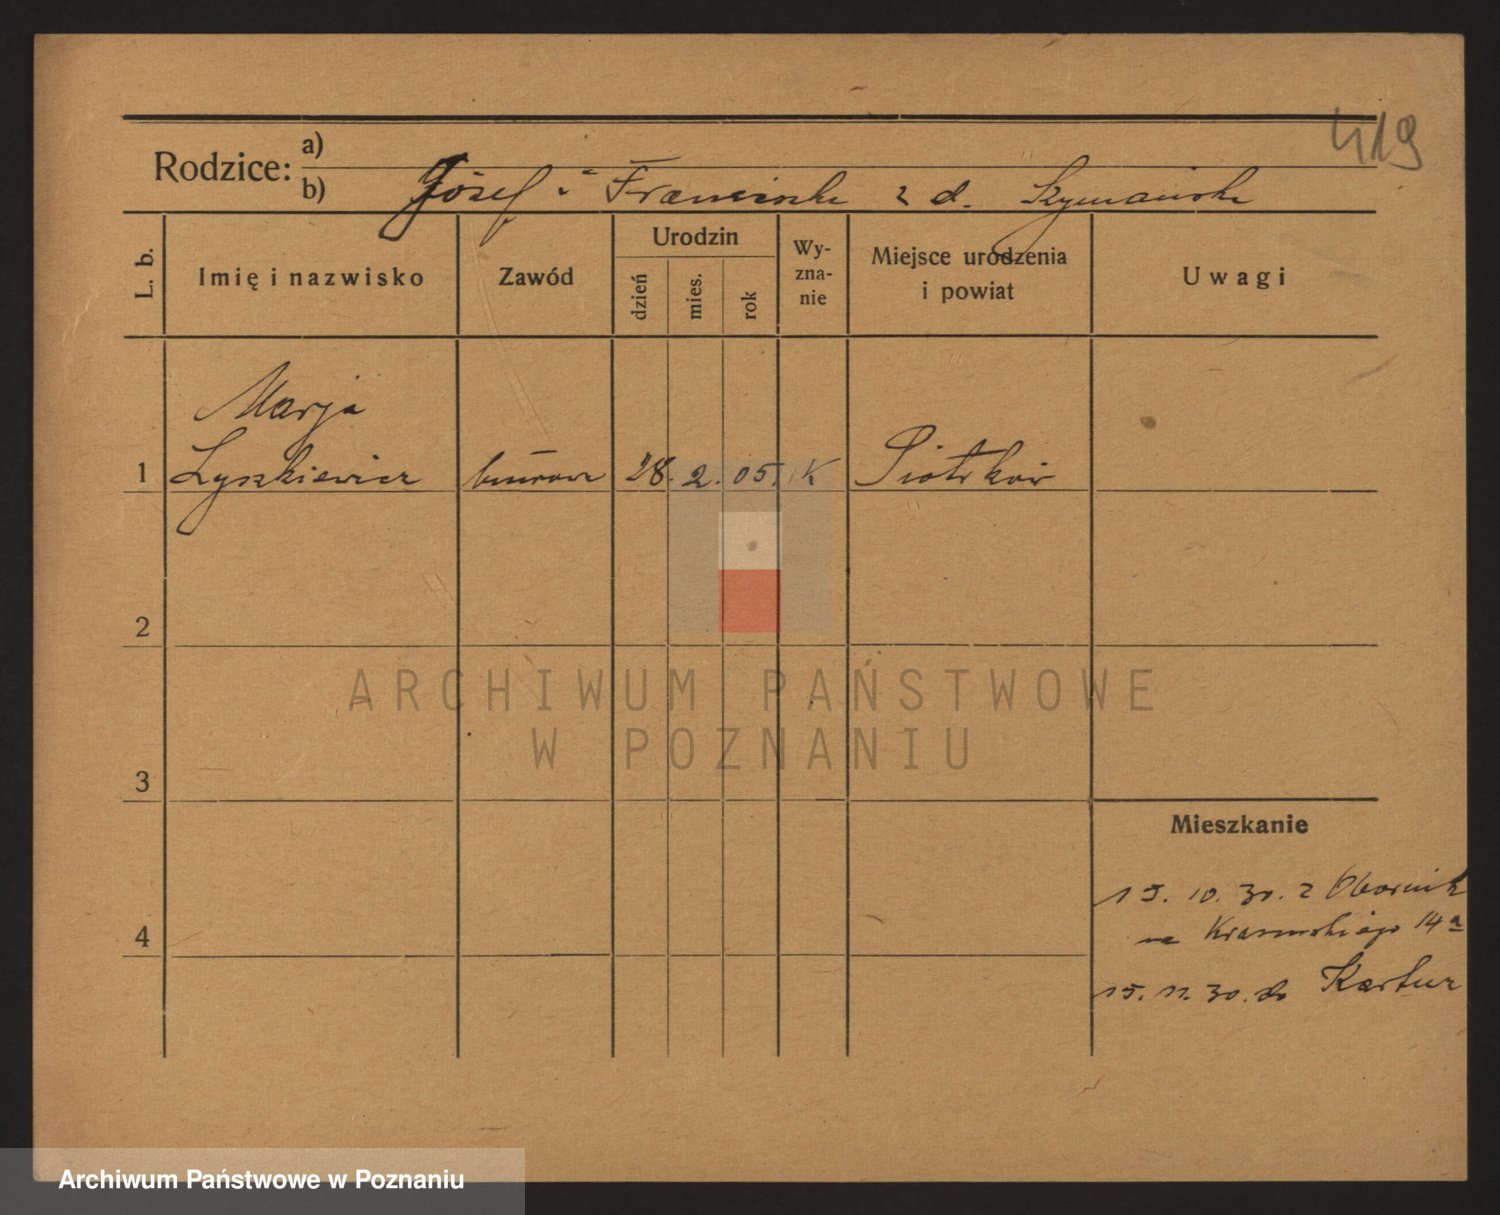 419
Rodzice:
a)
b) Józef i Franciszka z d. Szymańska
L. b.
Imię i nazwisko
Zawód
Urodzin
dzień
mies.
rok
Wy-
zna-
nie
Miejsce urodzenia
i powiat
Uwagi
Marja
1 Łyszkiewicz biurowa 28. 2. 05. K Piotrków
2
3
4
Mieszkanie
15. 10. 30. z Obornik
na Krasińskiego 14a
15. 11. 30. do Kartuz
ARCHIWUM PAŃSTWOWE
W POZNANIU
Archiwum Państwowe w Poznaniu